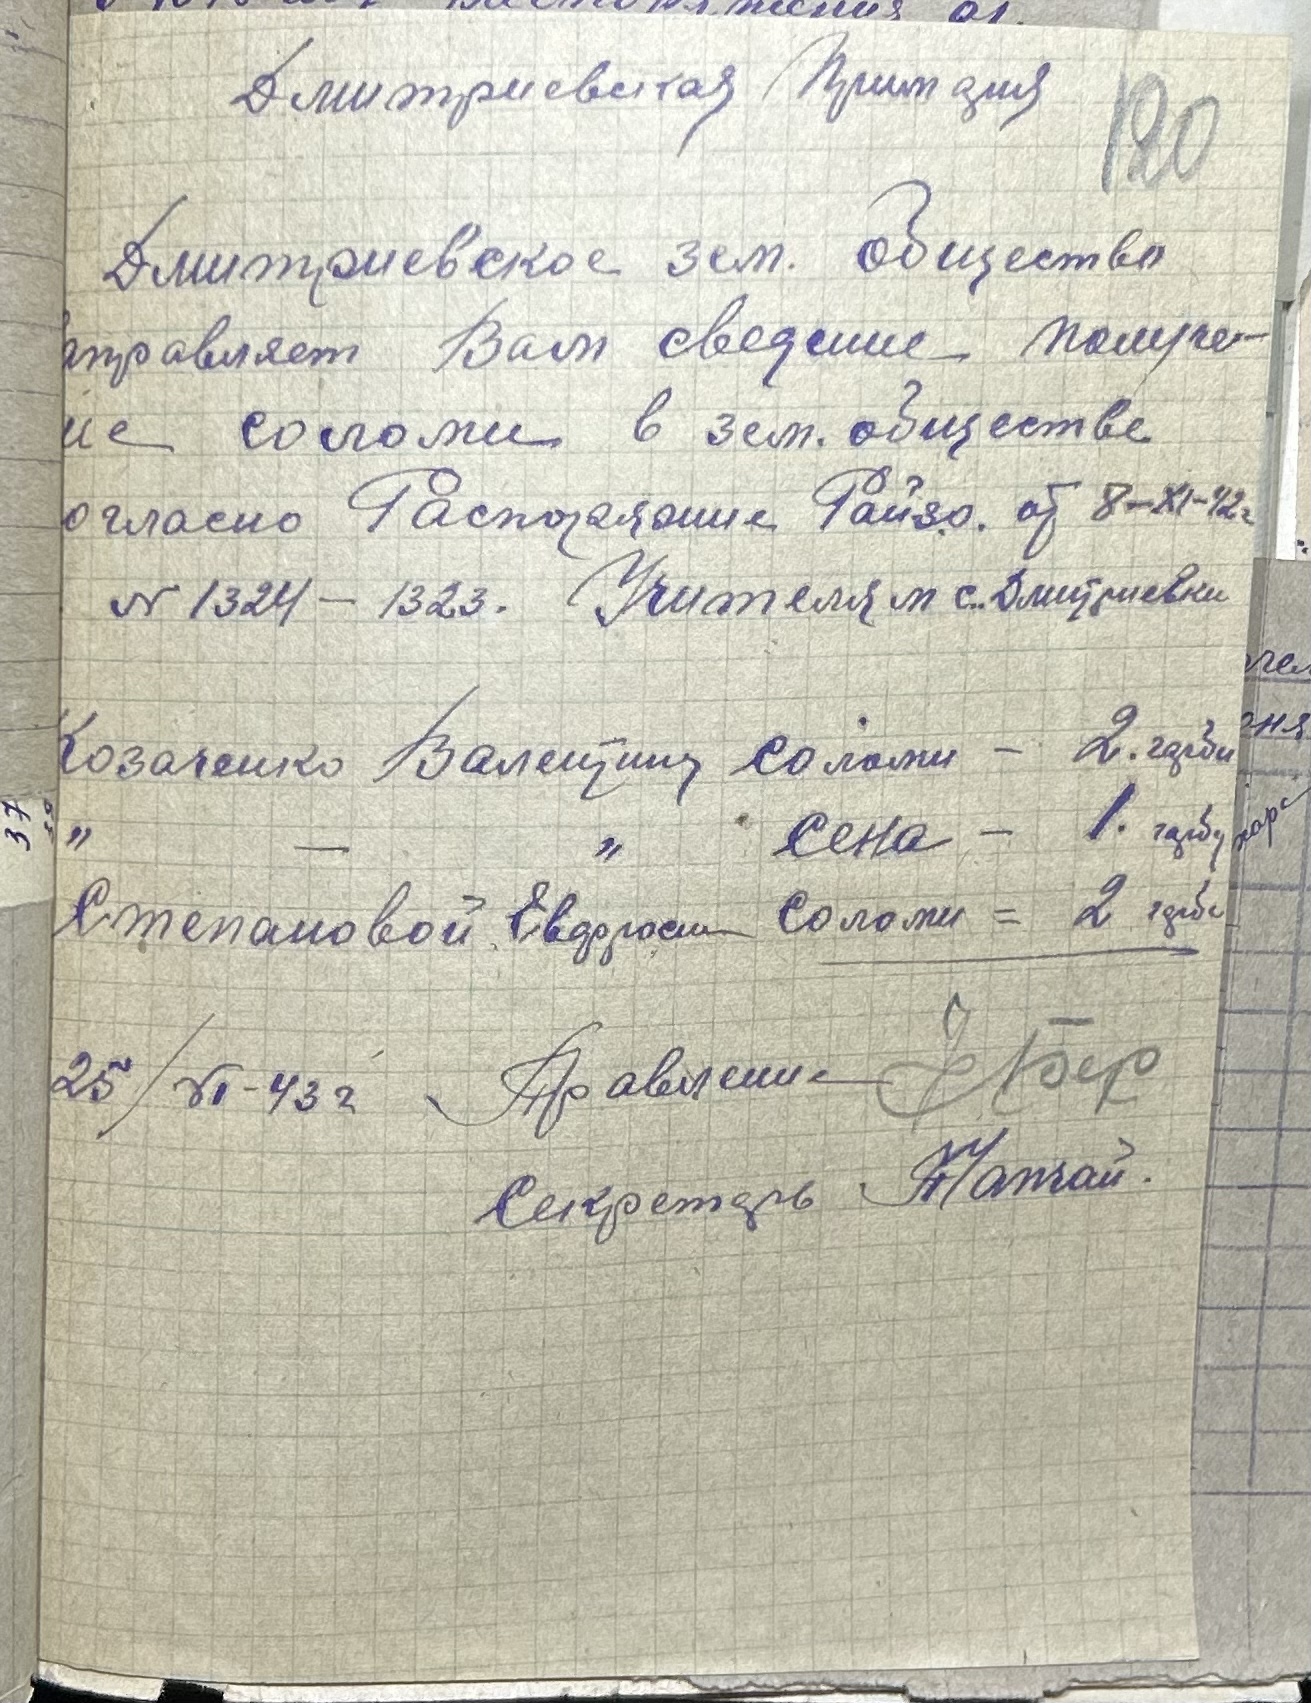 Дмитриевская Примария
120
Дмитриевское зем. общество
аправляет Вам сведение получе-
ие соломи в зем. обществе
огласно Распоряжение Райзо. от 8-XI-42г
№ 1324 – 1323. Учителям с. Дмитриевки
Козаченко Валентину соломи – 2. гарби
„ — „ сена – 1. гарбу
Степановой Евфросии соломи = 2 гарби
25/VI-43 г Правление
Секретарь
37